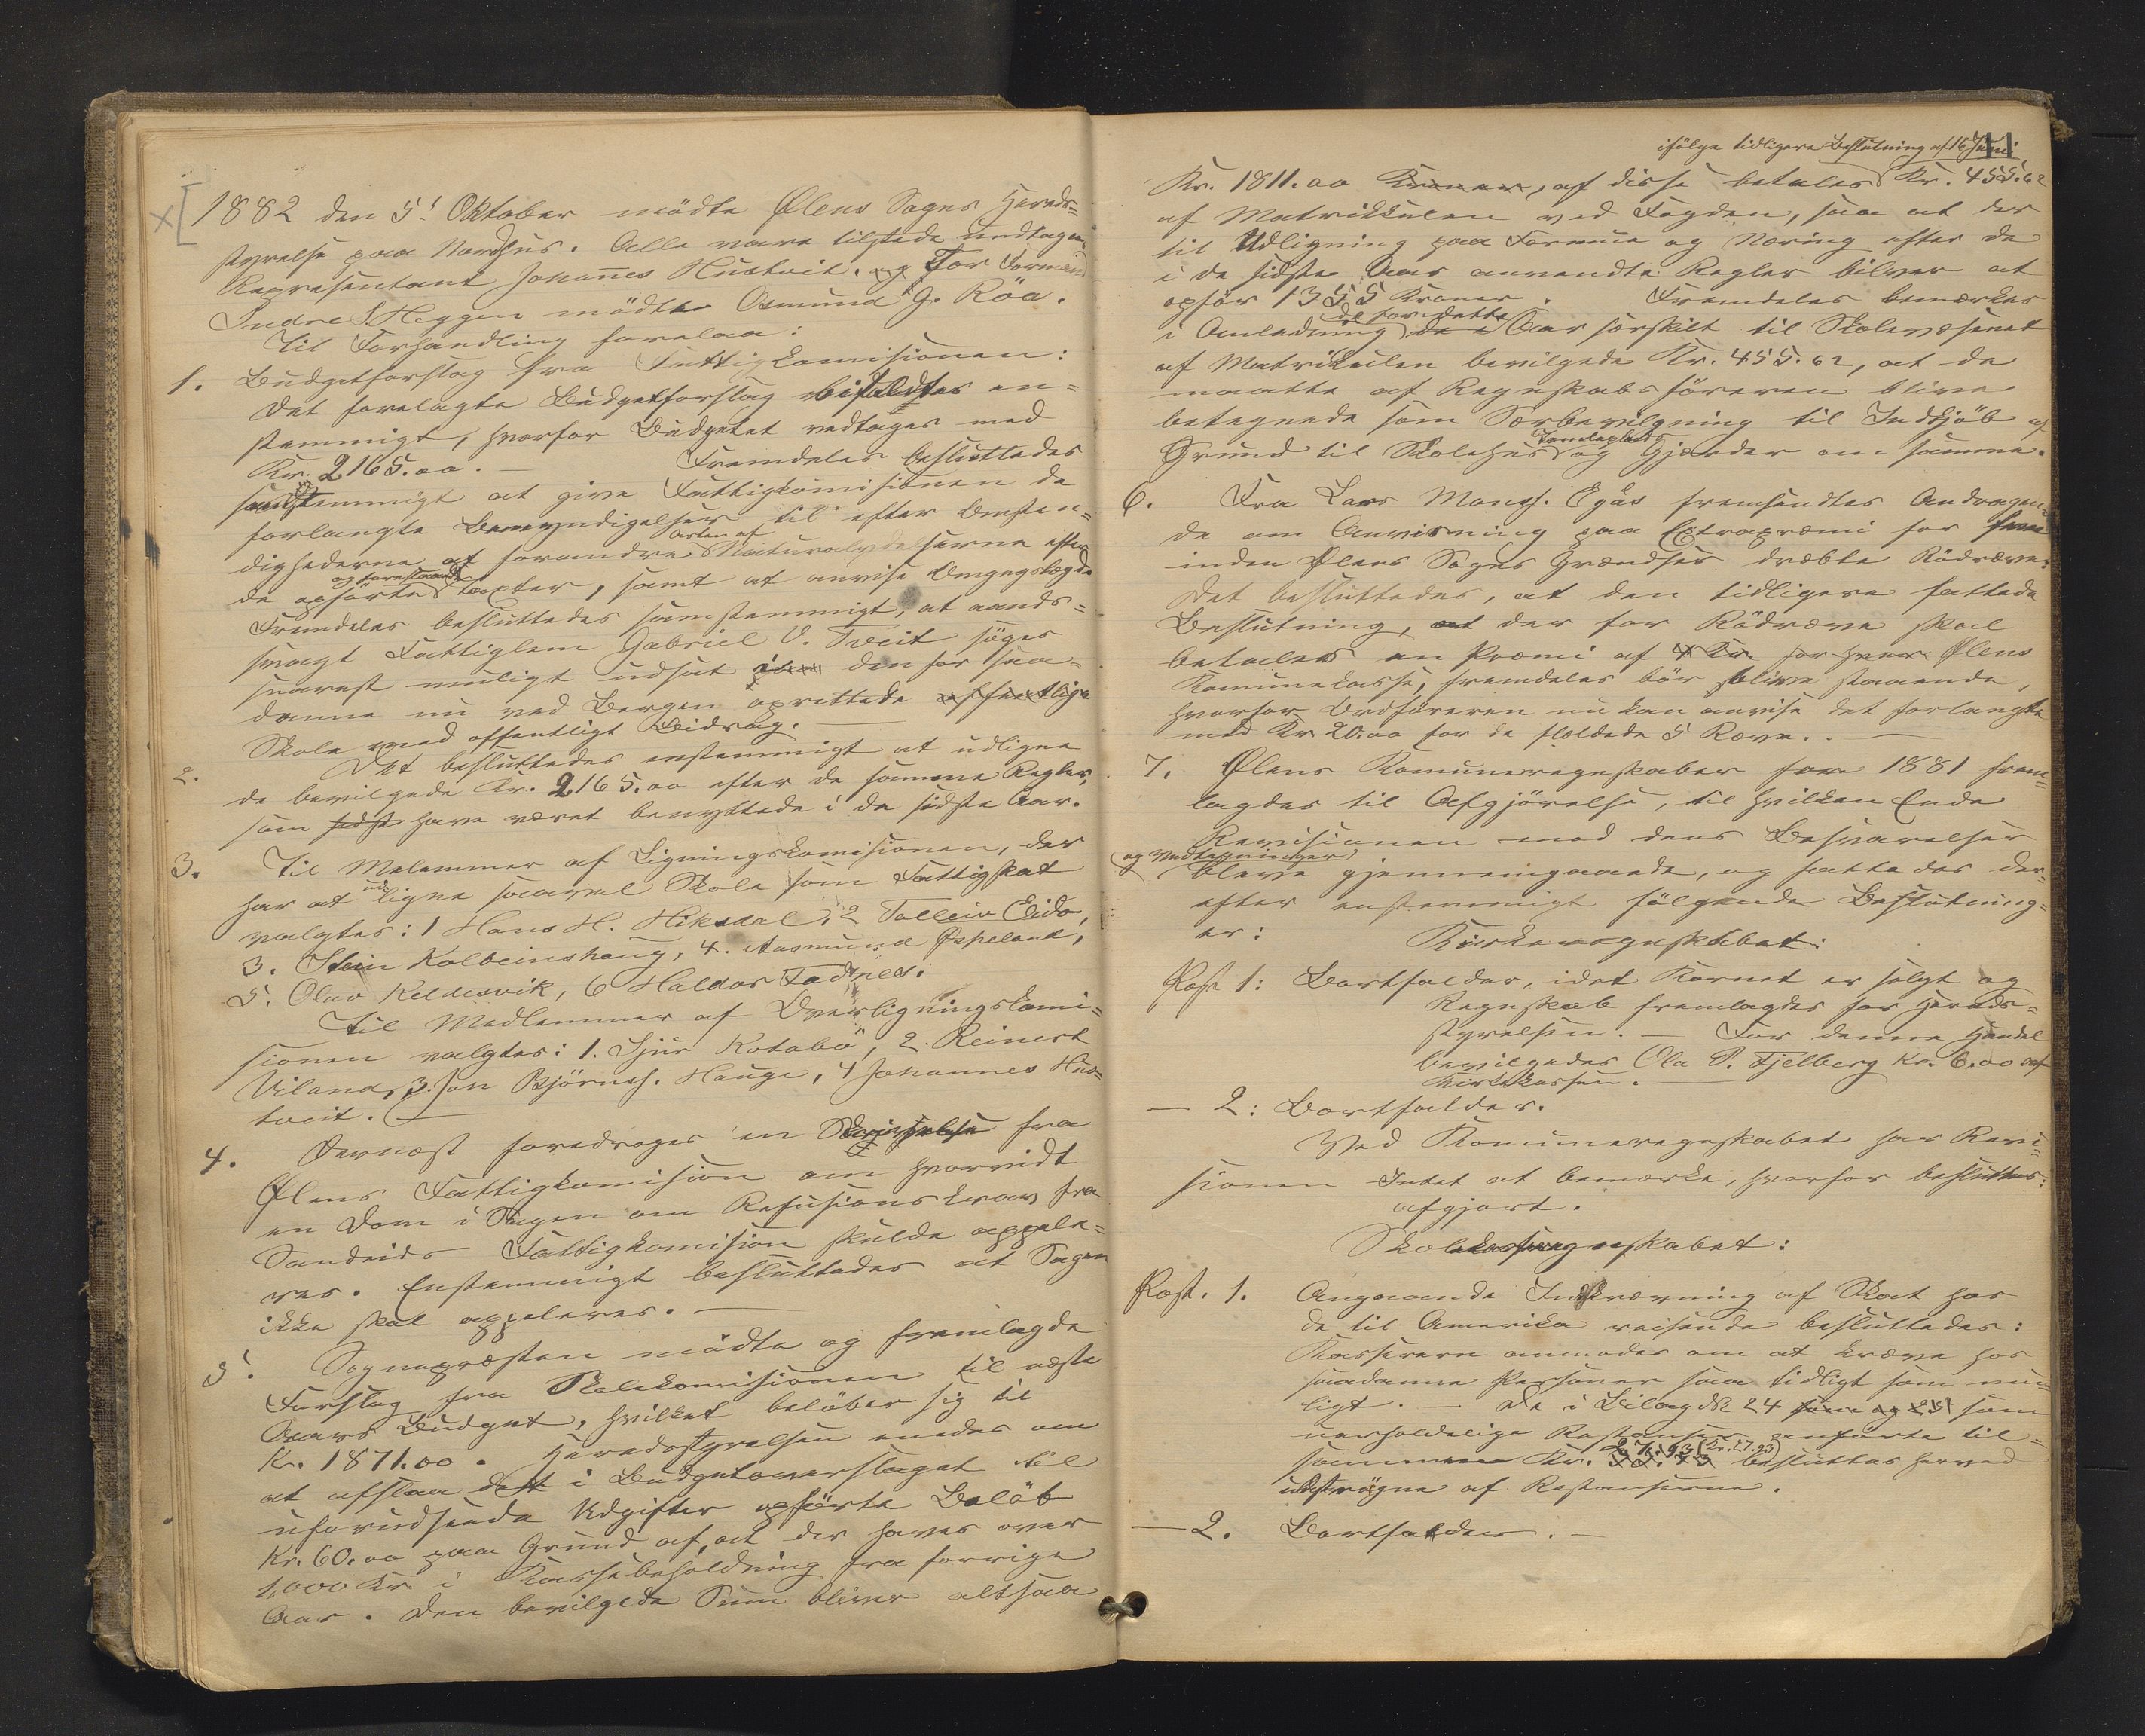 1882 den 5' Oktober mödte Ølens Sogns Herreds-
styrelse paa Nordhus. Alle vare tilstede undtagen
Repræsentant Johannes Hustveit. For Formand
Indre S. Heggen mödte Osmund G. Röa.
Til Forhandling forelaa:
1. Budgetforslag fra Fattigkomisionen:
Det forelagte Budgetforslag bifaldtes en-
stemmigt, hvorfor Budgetet vedtages med
Kr. 2165.00. – Fremdeles besluttedes
samstemmigt at give Fattigkomisionen de
forlangte Bemyndigelser til efter Omsten-
Arten af
dighederne at forandre Naturalydelserne efter
og forestaaende
de opförte taxter, samt at anvise Omgangslægde
Fremdeles besluttedes samstemmigt, at aands-
svagt Fattiglem Gabriel V. Tveit söges
snarest muligt udsat i den for saa-
danne nu ved Bergen oprettede offentlige
Skole med offentligt Bidrag. –
2. Det besluttedes enstemmigt at udligne
de bevilgede Kr. 2165.00 efter de samme Regler,
som sidst have været benyttede i de sidste Aar.
3. Til Medlemmer af Ligningskomisionen, der
har at udligne saavel Skole som Fattigskat
valgtes: 1 Hans H. Hiksdal, 2 Tolleiv Eide,
3. Stein Kolbeinshaug, 4. Aasmund Øspeland,
5. Oluv Keldesvik, 6 Haldor Fadnes.
Til Medlemmer af Overligningskomi-
sionen valgtes: 1. Sjur Kotabö, 2. Reinert
Viland, 3. Jon Björnss. Hauge, 4 Johannes Hus-
tveit. –
4. Dernæst foredroges en Skrivelse fra
Ølens Fattigkomision om hvorvidt
en Dom i Sagen om Refusionskrav fra
Sandeids Fattigkomision skulde appele-
res. Enstemmigt besluttedes at Sagen
ikke skal appeleres. –
5. Sognepræsten mödte og fremlagde
Forslag fra Skolekomisionen til næste
Aars Budget, hvilket belöber sig til
Kr. 1871.00. Herredsstyrelsen enedes om
at afslaa det i Budgetoverslaget til
uforudseede Udgifter opförte Belöb
Kr. 60.00 paa Grund af, at der haves over
1,000 Kr. i Kassebeholdning fra forrige
Aar. Den bevilgede Sum bliver altsaa
11
ifölge tidligere Beslutning af 16 Juni
Kr. 1811.00 Kroner, af disse betales Kr. 455.62
af Matrikkulen ved Fogden, saa at der
til Udligning paa Formue og Næring efter de
i de sidste Aar anvendte Regler bliver at
opför 1355 Kroner. Fremdeles bemærkes
de for dette
i Anledning de i Aar særskilt til Skolevæsenet
af Matrikulen bevilgede Kr. 455.62, at de
maatte af Regnskabsföreren blive
betegnede som Særbevilgning til Indkjöb af
Tomteplads
Grund til Skolehus og Gjærder om samme.
6. Fra Lars Monss. Egås fremsendtes Andragen-
de om Anvisning paa Extrapræmi for fem
inden Ølens Sogns Grændser dræbte Rödræve:
Det besluttedes, at den tidligere fattede
Beslutning, at der for Rödræve skal
betales en Præmi af 4 Kr. for hver Ølens
Komunekasse, fremdeles bör blive staaende,
hvorfor Ordföreren nu kan anvise det forlangte
med Kr 20.00 for de fældede 5 Ræve. –
7. Ølens Komuneregnskaber for 1881 frem-
lagdes til Afgjörelse, til hvilken Ende
Revisionen med dens Besvarelser
og Vedtegninger
bleve gjennemgaaede, og fattedes der-
efter enstemmigt fölgende Beslutning-
er:
Kirkeregnskabet:
Post 1: Bortfalder, idet Kornet er solgt og
Regnskab fremlagdes for Herreds-
styrelsen. – For denne Handel
bevilgedes Ola P. Fjelberg Kr. 6.00 af
Kirkekassen. –
– 2: Bortfalder.
Ved Komuneregnskabet har Revi-
sionen Intet at bemærke, hvorfor besluttes:
afgjort.
Skolekasseregnskabet:
Post. 1. Angaaende Indkrævning af Skat hos
de til Amerika reisende besluttedes:
Kassereren anmodes om at kræve hos
saadanne Personer saa tidligt som mu-
ligt. – De i Bilag № 24 som
uerholdelige Restanser anförte til-
27.93 (Kr. 27.93)
sammen Kr. besluttes herved
udströgne af Restanserne.
– 2. Bortfalder. –